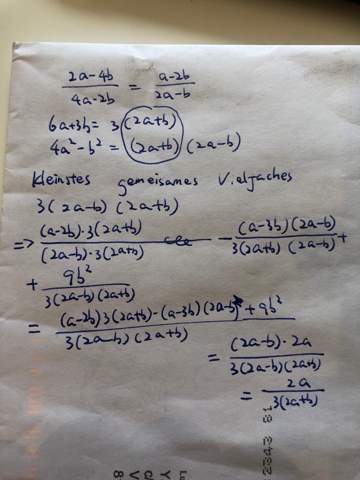 (2a-4b)/(4a-2b) = (a-2b)/(2a-b)
6a+3b = 3 (2a+b)
4a²-b² = (2a+b) (2a-b)
kleinstes gemeisames V.elfaches
3 (2a-b) (2a+b)
=> ((a-2b)·3(2a+b))/((2a-b)·3(2a+b)) - ((a-3b)(2a-b))/(3(2a+b) (2a-b)) +
+ 9b²/(3(2a-b)(2a+b))
= ((a-2b)3(2a+b)-(a-3b)(2a-b)+9b²)/(3(2a-b)(2a+b))
= ((2a-b)·2a)/(3(2a-b)(2a+b))
= 2a/(3(2a+b))